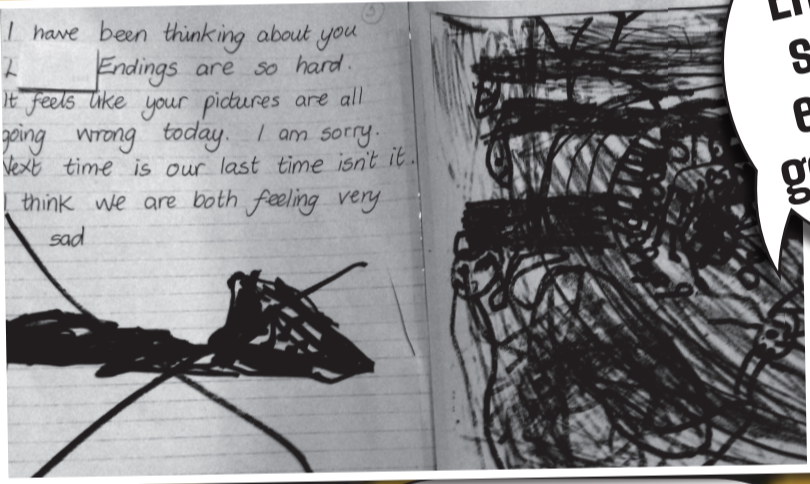 I have been thinking about you
L Endings are so hard.
It feels like your pictures are all
going wrong today. I am sorry.
Next time is our last time isn't it.
I think we are both feeling very
sad